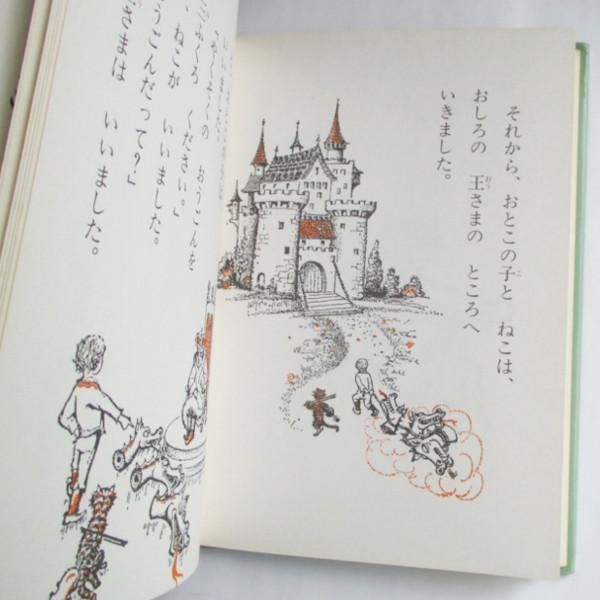 それから、おとこの子と ねこは、
おしろの 王さまの ところへ
いきました。
おうごんを
ください。」
ねこが いいました。
うごんだって？」
さまは いいました。